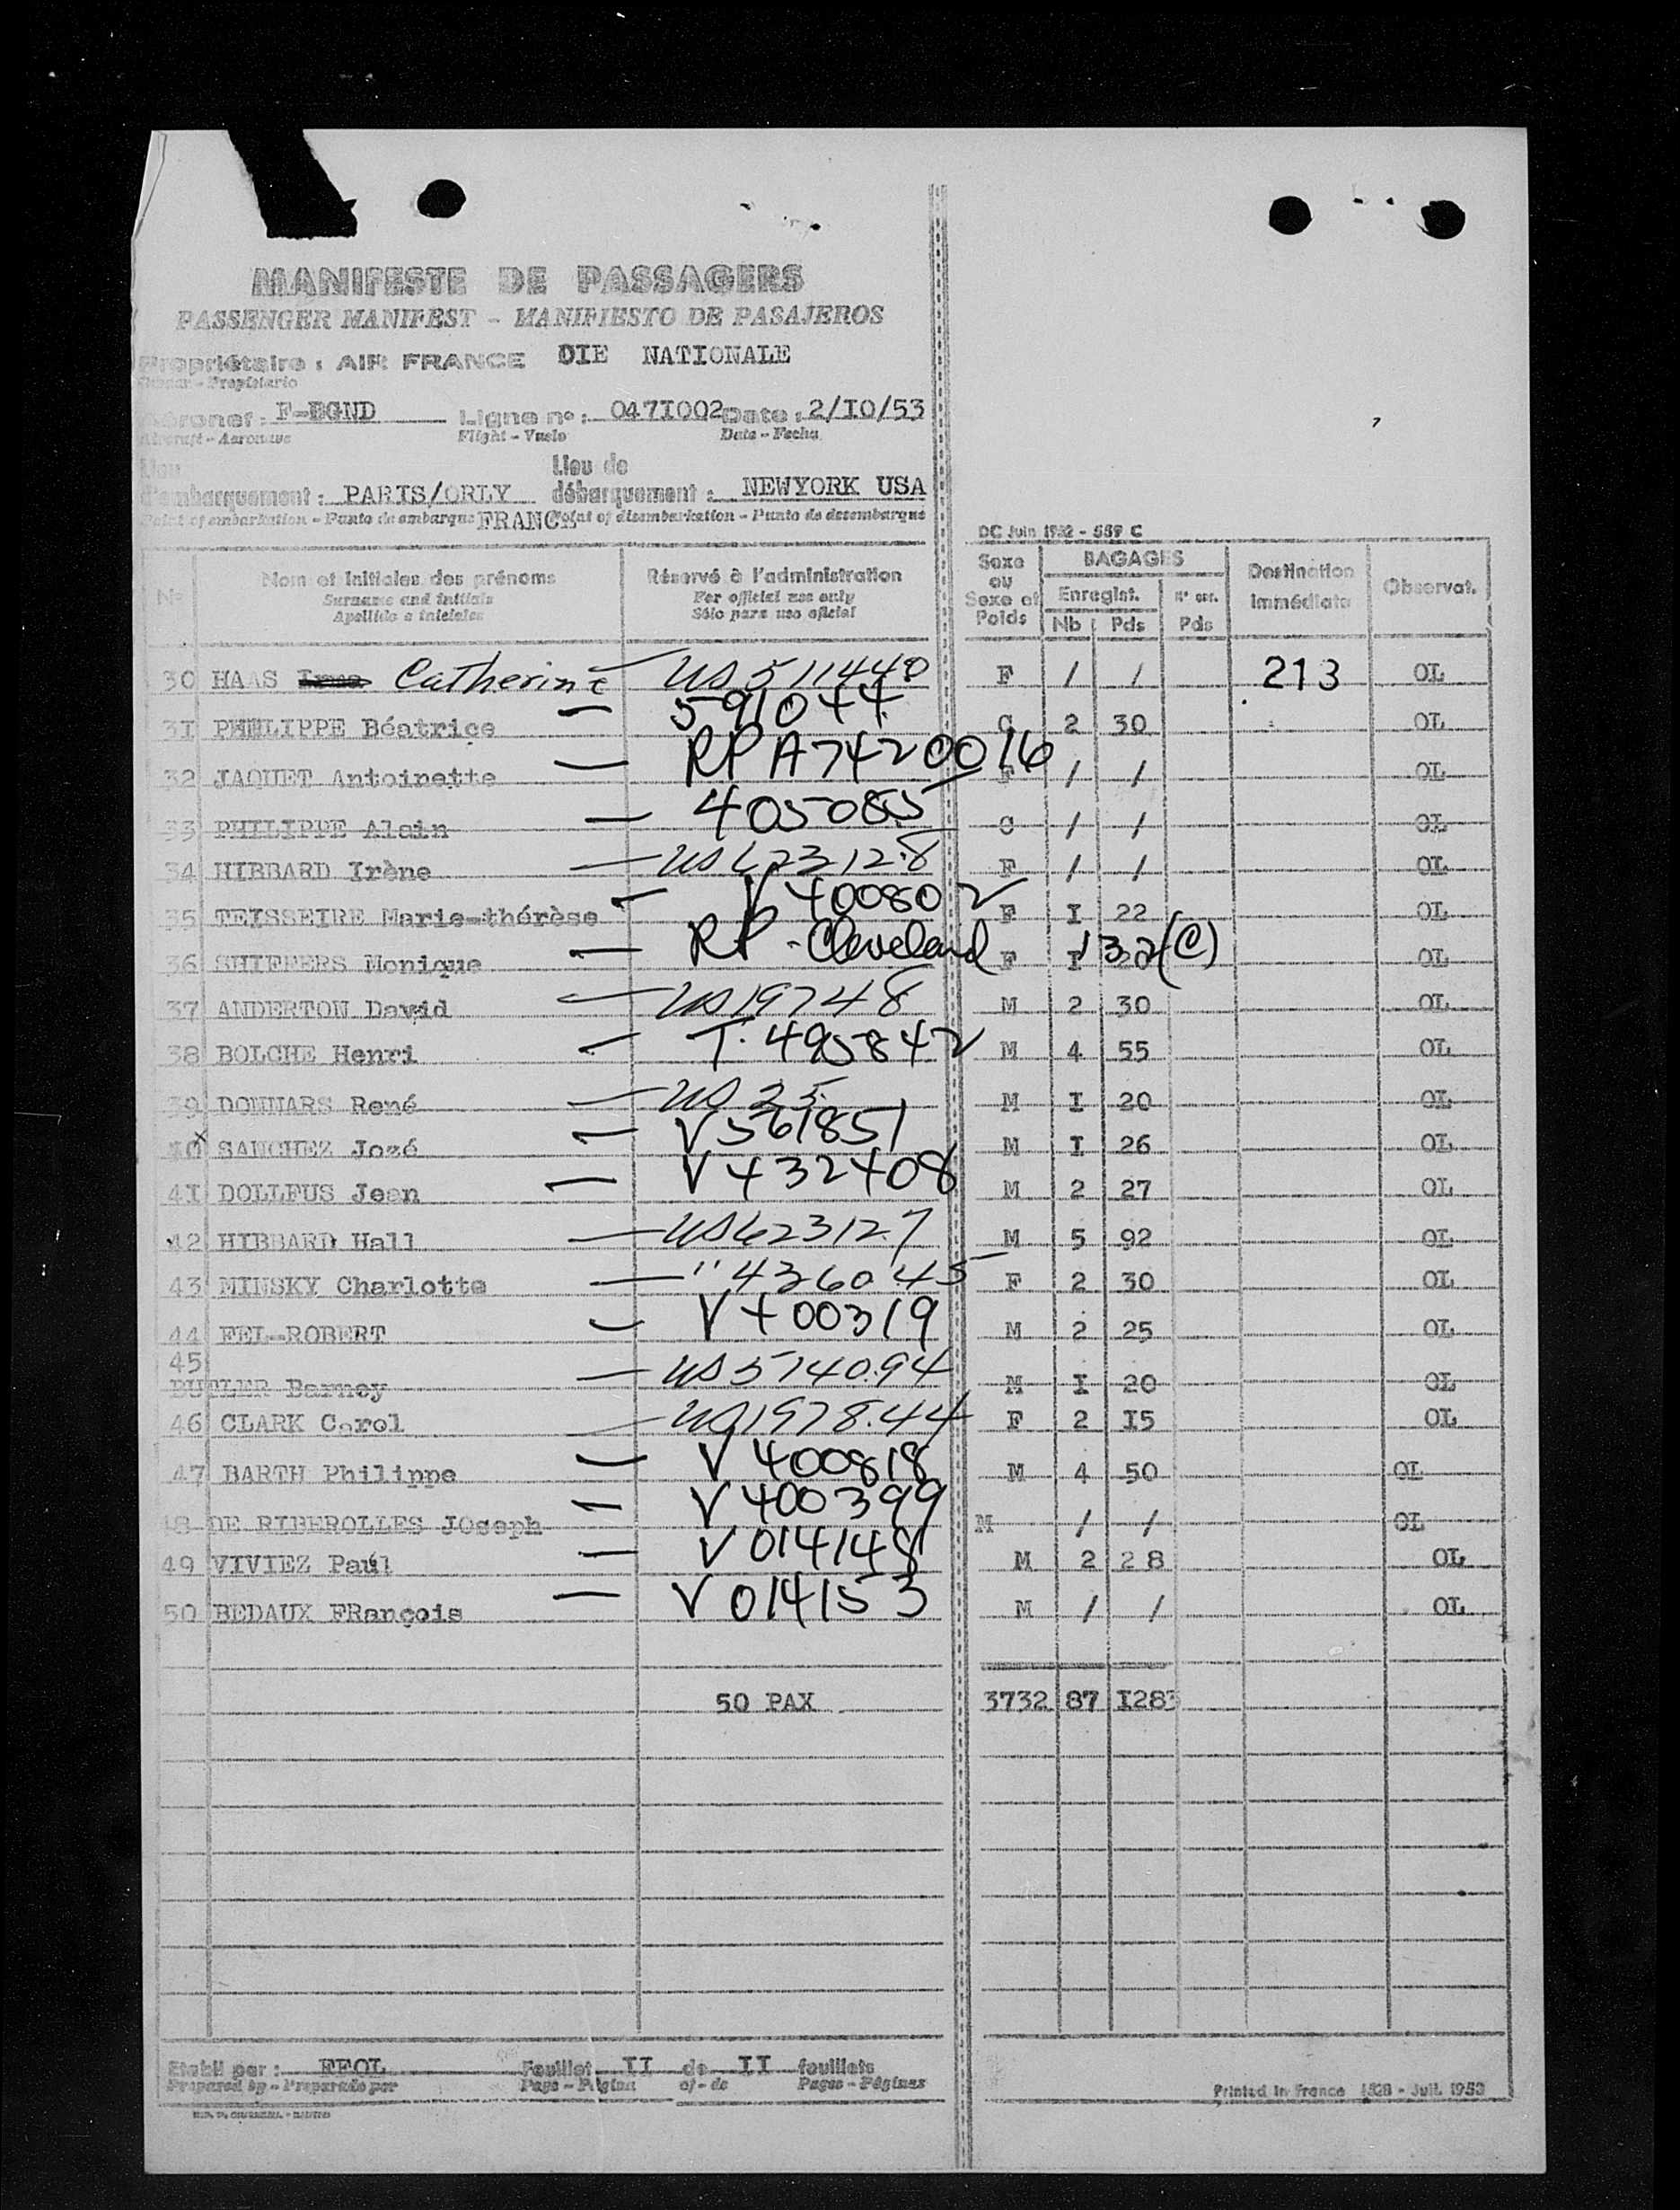 MANIFESTE DE PASSAGERS
PASSENGER MANIFEST - MANIFIESTO DE PASAJEROS
Propriétaire : AIR FRANCE DIE NATIONALE
Owner - Propietario
Aéronef : F-BGND Ligne n° : 0471002 Date : 2/I0/53
Aircraft - Aeronave Flight - Vuelo Date - Fecha
Lieu Lieu de
d'embarquement : PARIS/ORLY débarquement : NEWYORK USA
Point of embarkation - Punto de embarque FRANCE Point of disembarkation - Punto de desembarque
DC Juin 1952 - 559 C
N° Nom et initiales des prénoms Réservé à l'administration Sexe ou Sexe et Poids BAGAGES Destination immédiate Observat.
Surname and initials For official use only Enregist.
Apellido e iniciales Sólo para uso oficial Nb Pds Pds
30 HAAS Catherine US 511440 F / / 213 OL
3I PHILIPPE Béatrice — 591044 C 2 30 OL
32 JAQUET Antoinette — RP A7420016 F / / OL
33 PHILIPPE Alain — 405085 C / / OL
34 HIBBARD Irène — US 623128 F / / OL
35 TEISSEIRE Marie-thérèse — V 400802 F I 22 OL
36 SHIFFERS Monique — RP - Cleveland F I 132(C) OL
37 ANDERTON David — US 19748 M 2 30 OL
38 BOLCHE Henri — T. 495842 M 4 55 OL
39 DOMMARS René — US 25 M I 20 OL
40 SANCHEZ José — V561851 M I 26 OL
4I DOLLFUS Jean — V432408 M 2 27 OL
42 HIBBARD Hall — US 623127 M 5 92 OL
43 MINSKY Charlotte — " 436045 F 2 30 OL
44 FEL-ROBERT — V400319 M 2 25 OL
45
BUTLER Barney — US 574094 M I 20 OL
46 CLARK Carol — US 1978.44 F 2 I5 OL
47 BARTH Philippe — V 400818 M 4 50 OL
48 DE RIBEROLLES JOseph — V400399 M / / OL
49 VIVIEZ Paul — V014148 M 2 28 OL
50 BEDAUX FRançois — V014153 M / / OL
50 PAX 3732 87 I283
Etabli par : FFOL Feuillet II de II feuillets
Prepared by - Preparado por Page - Página of - de Pages - Páginas
Printed in France 1528 - Juil. 1953